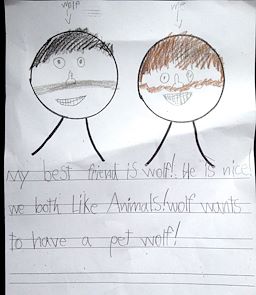 wolf
me
My best friend is wolf! He is nice!
we both Like Animals! wolf wants
to have a pet wolf!